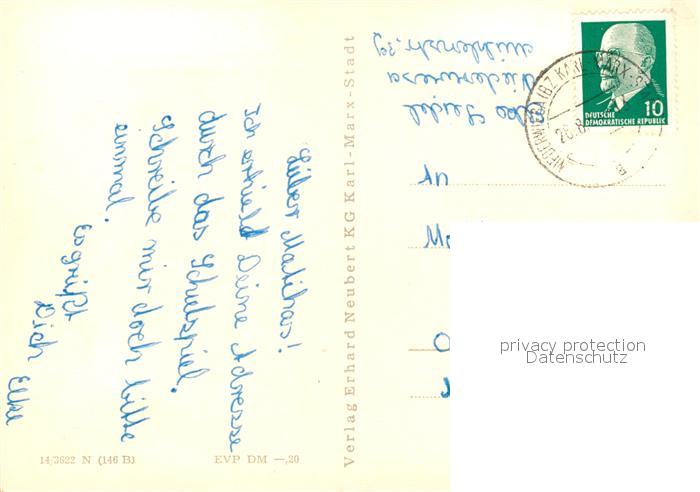 Lieber Mathias!
Ich erhielt Deine Adresse
durch das Schulspiel.
Schreibe mir doch bitte
einmal!
Es grüßt
Dich Elke
14/3622 N (146 B)
EVP DM —,20
Verlag Erhard Neubert KG Karl-Marx-Stadt
Seidel
Niederwiesa
Mühlenstr. 39
NIEDERWIESA (BZ KARL-MARX-
26.8
B
10
DEUTSCHE
DEMOKRATISCHE REPUBLIK
An
M
O
privacy protection
Datenschutz